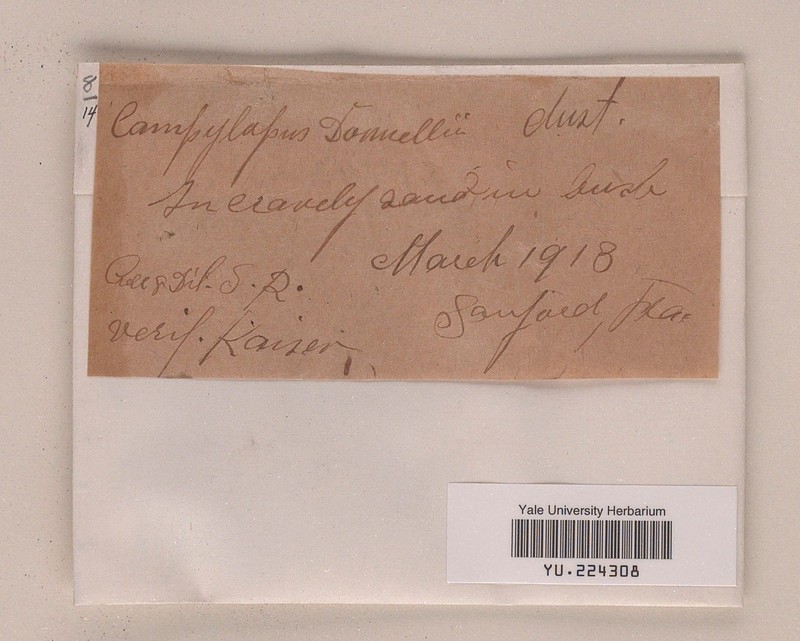 8/14
Campylopus Donnellii Aust.
In gravely sand in bush
March 1918
Coll & Det. S. R.
Sanford, Fla.
Verif. Kaiser
Yale University Herbarium
YU.224308